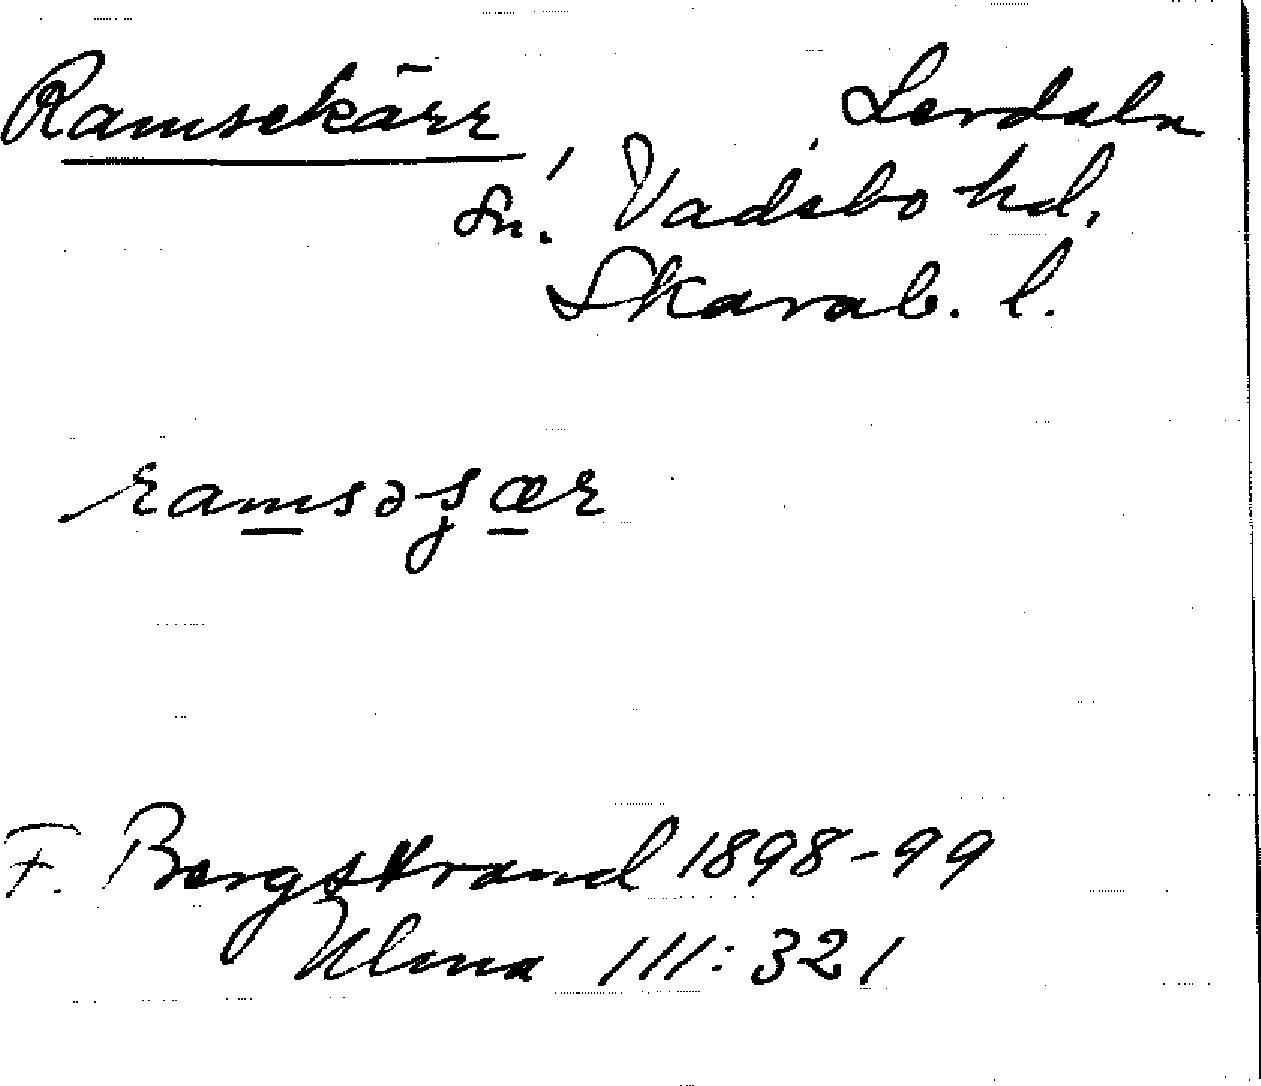 Ramsekärr Lerdala
sn. Vadsbo hd,
Skarab. l.
ramsəʂær
F. Bergstrand 1898-99
Ulma 111:321